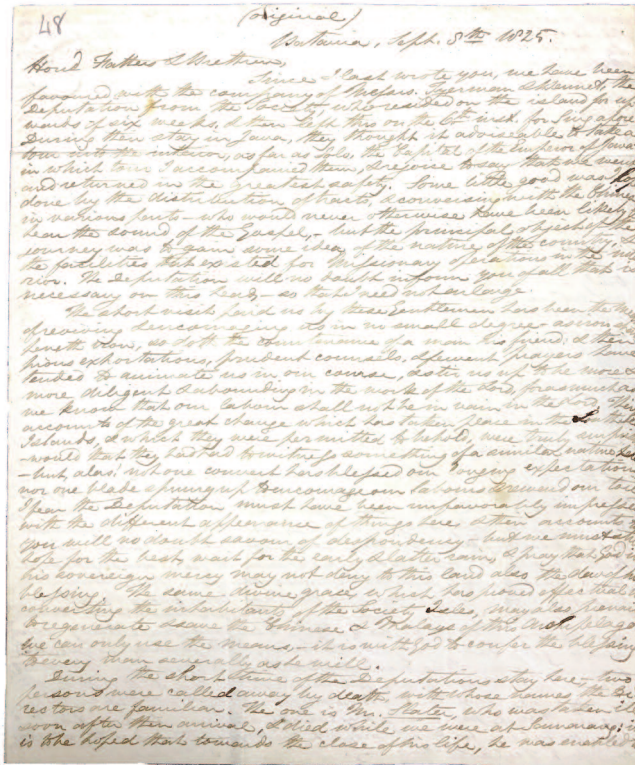 48
(original)
Batavia, Sept. 8th 1825.
Hond. Fathers & Brethren,
Since I last wrote you, we have been
favoured with the company of Messrs. Tyerman & Bennet, the
Deputation from the Society, who resided on the island for up
wards of six weeks, & then left this on the 6th inst. for Singapore
During their stay in Java, they thought it adviseable to take a
tour into the interior, as far as Solo, the Capital of the Emperor of Java
in which tour I accompanied them, & rejoice to say that we went
and returned in the greatest safety. Some little good was
done by the distribution of tracts, & conversing with the Chinese
in various parts – who would never otherwise have been likely
hear the sound of the Gospel, – but the principal object of the
journey was to gain some idea of the nature of the country, &
the facilities that existed for Missionary operations in the
rior. The Deputation will no doubt inform you of all that is
necessary on this head, – so that I need not enlarge.
The short visit paid us by these Gentlemen has been the
of reviving & encouraging us in no small degree – as iron
eneth iron, so doth the countenance of a man his friend: & their
pious exhortations, prudent counsels, & fervent prayers have
tended to animate us in our course, & stir us up to be more &
more diligent & abounding in the work of the Lord, forasmuch as
we know that our labour shall not be in vain in the Lord. The
accounts of the great change which has taken place in the
Islands, & which they were permitted to behold, were truly
– would that they had had to witness something of a similar nature
– but, alas! not one convert has blessed our longing expectation
nor one blade sprung up to encourage our labours
I fear the Deputation must have been unfavorably impressed
with the different appearance of things here & their account
you will no doubt savour of despondency – but we must
hope for the best, wait for the early & latter rain, & pray that God in
his sovereign mercy may not deny to this land also the dew of
blessing. The same divine grace, which has proved effectual
converting the inhabitants of the Society Isles, may also
to regenerate & save the Chinese & Malays of this Archipelago
we can only use the means, – it is with God to confer the blessing
to every man severally as he will.
During the short time of the Deputations stay here – two
persons were called away by death with whose names the Di
rectors are familiar. The one is Mr. Slater who was taken
soon after their arrival, & died while we were at Samarang;
is to be hoped that towards the close of his life, he was